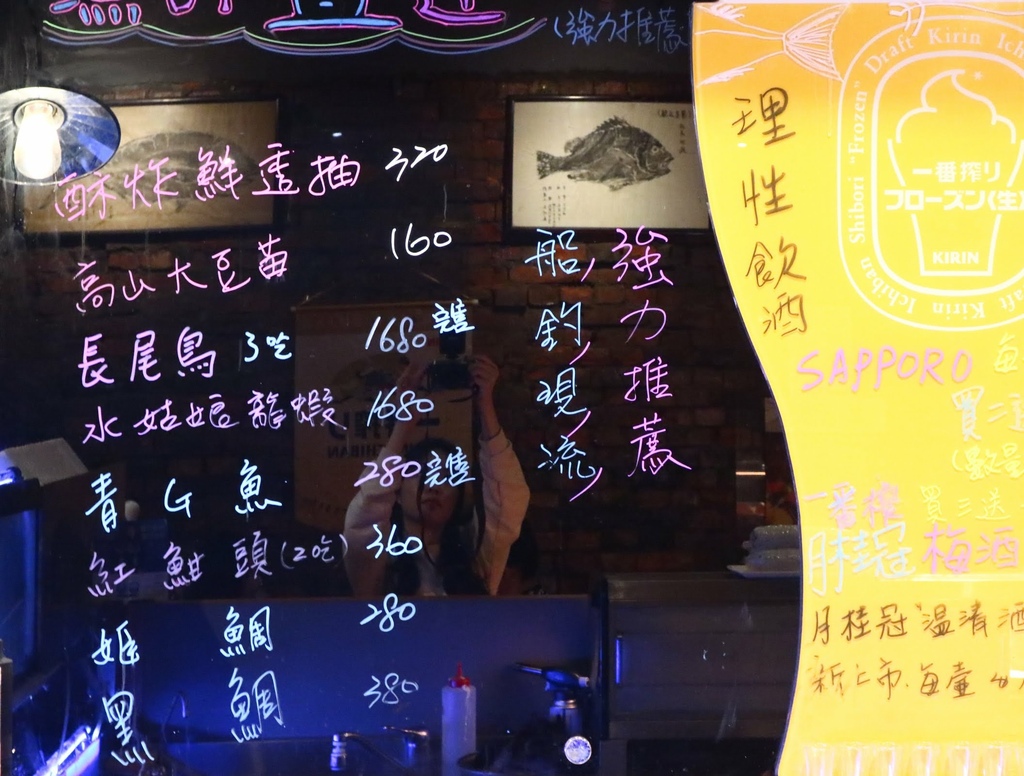 (強力推薦
酥炸鮮透抽 320
高山大豆苗 160
長尾鳥 3吃 1680 完售
水姑娘龍蝦 1680
青G魚 280 完售
紅魽頭(2吃) 360
姬鯛 280
黑鯛 380
船釣現流
強力推薦
理性飲酒
Shibori "Frozen" Draft Kirin Ich
Kirin Ichiban
一番搾り
フローズン(生)
KIRIN
SAPPORO 每
買二送
(數量
一番榨 買三送
月桂冠 梅酒
月桂冠 溫清酒
新上市.每壺